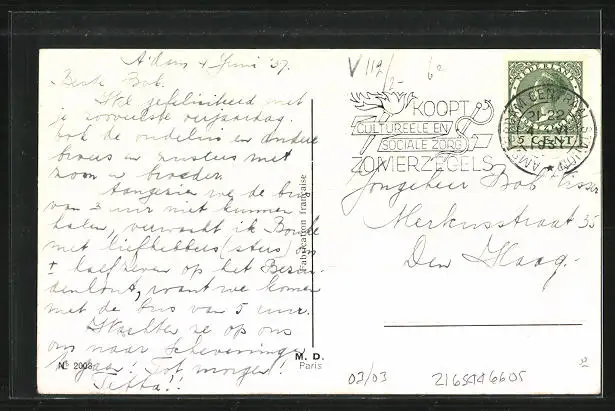 A'dam 4 Juni '37.
Beste Bob.
Wel gefeliciteerd met
je verjaardag.
Ook de ouders en andere
broers en zusters met
zoon en broeder.
Aangezien we de bus
van 3 uur niet kunnen
halen, verwacht ik
met liefhebbers
± half zeven op het Bezui-
denhout, want we komen
met de bus van 5 uur.
Wachten ze op ons
om naar Scheveningen
te gaan? Tot morgen!
Jetta!!
Nº 2008
Fabrication française
M. D.
Paris
V 112/2-
KOOPT
CULTUREELE EN
SOCIALE ZORG
ZOMERZEGELS
NEDERLAND
5 CENT
AMSTERDAM CENTRAAL STATION
21-22
Jongeheer Bob
Merkusstraat 35
Den Haag.-
03/03